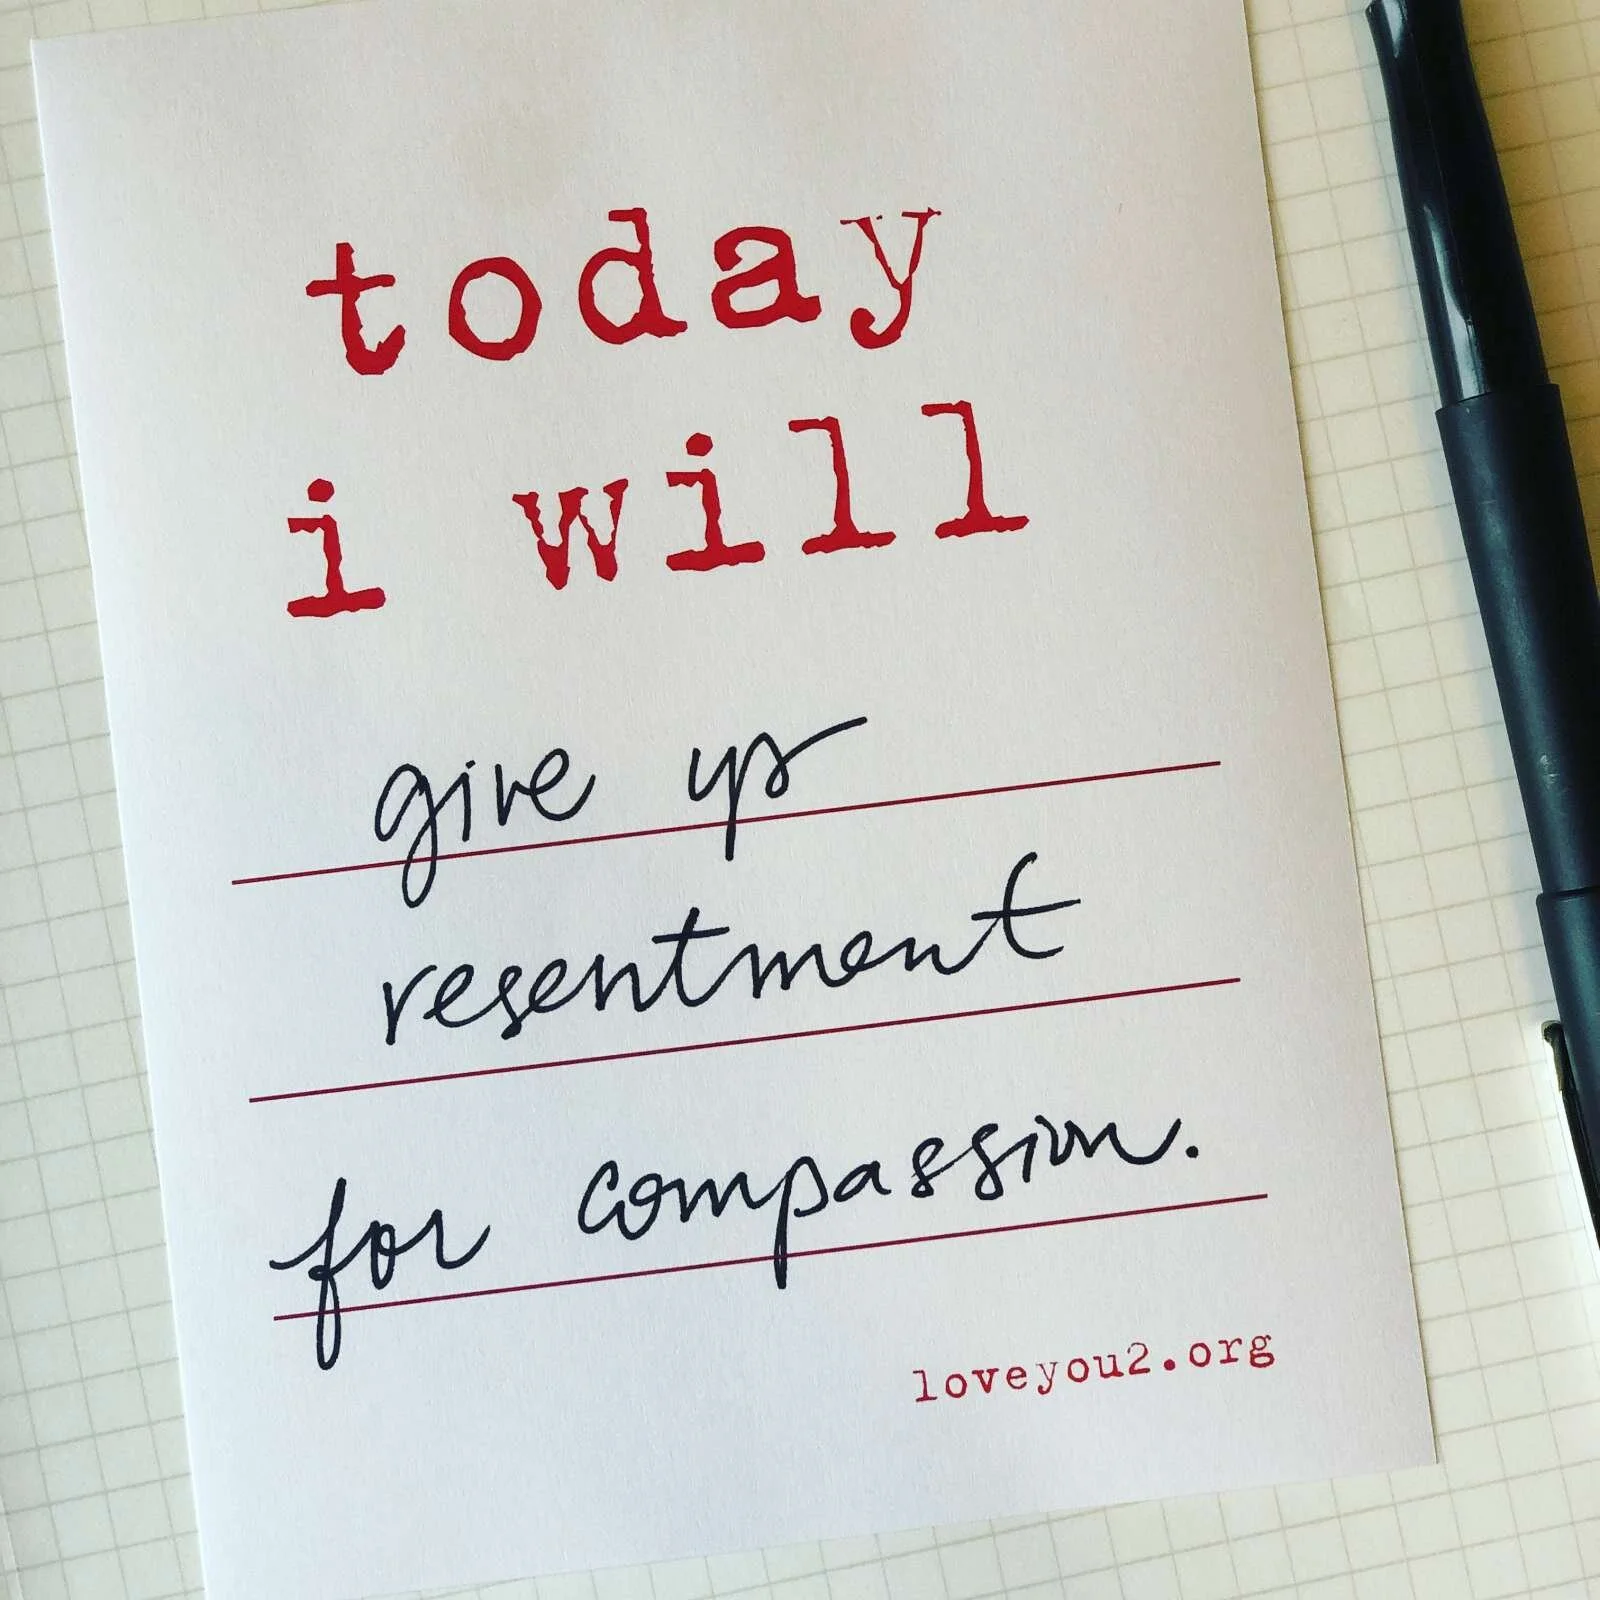 today
i will
give up
resentment
for compassion.
loveyou2.org